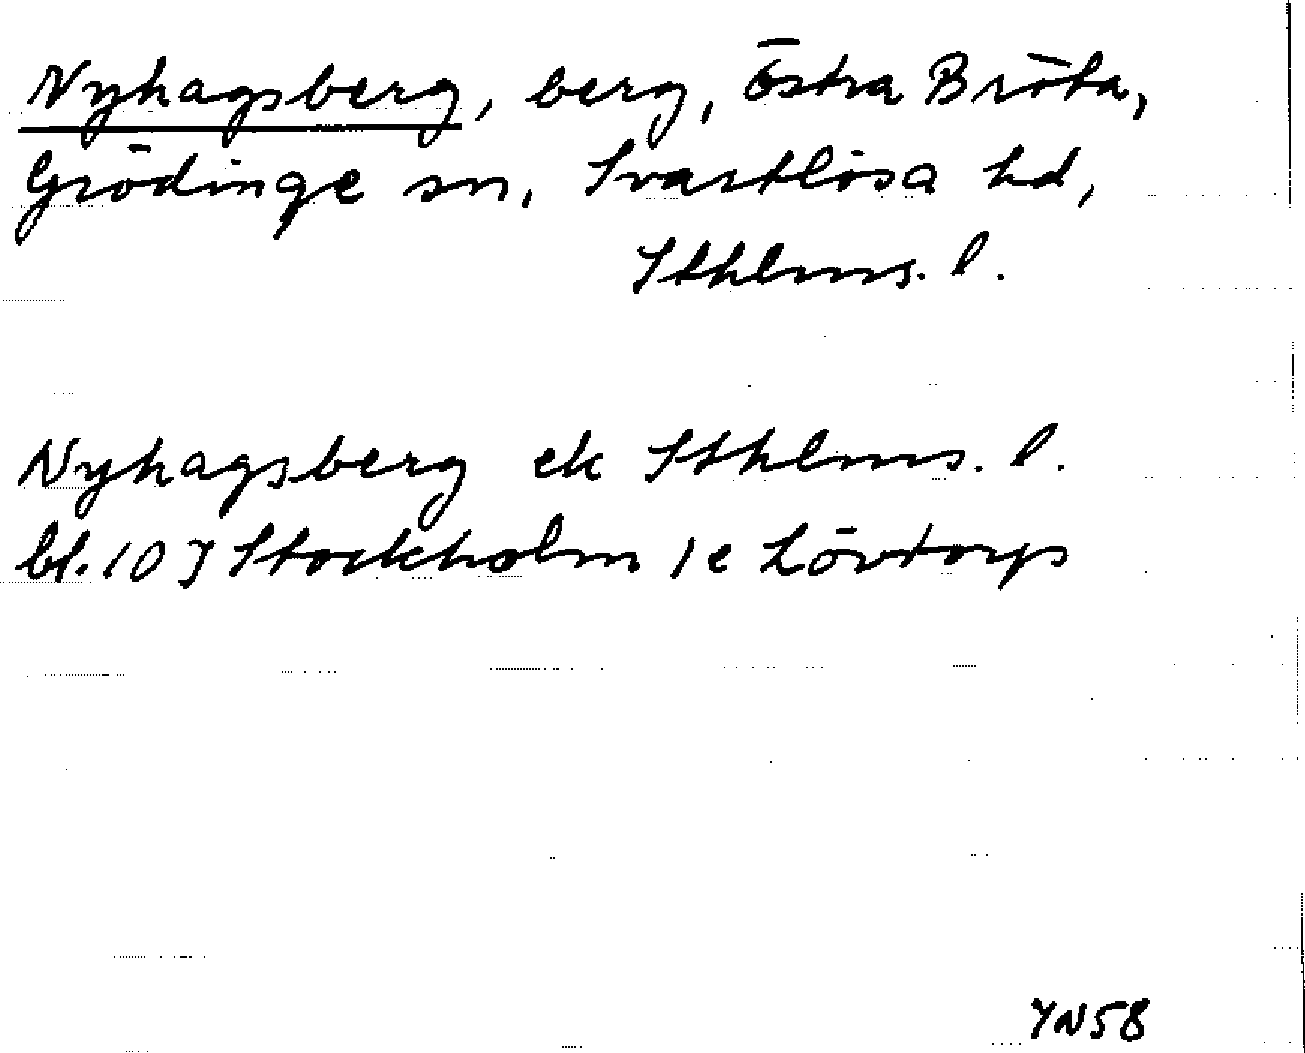 Nyhagsberg, berg, Östra Bröta,
Grödinge sn, Svartlösa hd,
Sthlms. l.
Nyhagsberg ek Sthlms. l.
bl. 10 J Stockholm 1e Lövtorps
YN58